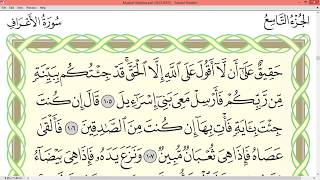 الجزء التاسع
سورة الأعراف
حَقِيقٌ عَلَىٰ أَن لَّا أَقُولَ عَلَى اللَّهِ إِلَّا الْحَقَّ قَدْ جِئْتُكُم بِبَيِّنَةٍ
مِّن رَّبِّكُمْ فَأَرْسِلْ مَعِيَ بَنِي إِسْرَائِيلَ ١٠٥ قَالَ إِن كُنتَ
جِئْتَ بِآيَةٍ فَأْتِ بِهَا إِن كُنتَ مِنَ الصَّادِقِينَ ١٠٦ فَأَلْقَىٰ
عَصَاهُ فَإِذَا هِيَ ثُعْبَانٌ مُّبِينٌ ١٠٧ وَنَزَعَ يَدَهُ فَإِذَا هِيَ بَيْضَاءُ